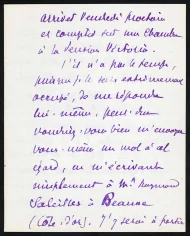 arriver vendredi prochain
et compter sur une chambre
à la Pension Victoria.
S'il n'a pas le temps,
puisqu'il se sait extrêmement
occupé, de me répondre
lui-même, peut-être
voudriez-vous bien m'envoyer
vous-même un mot à cet
égard, en m'écrivant
simplement à Mr Raymond
Saleilles à Beaune
(Côte d'or). J'y serai à partir